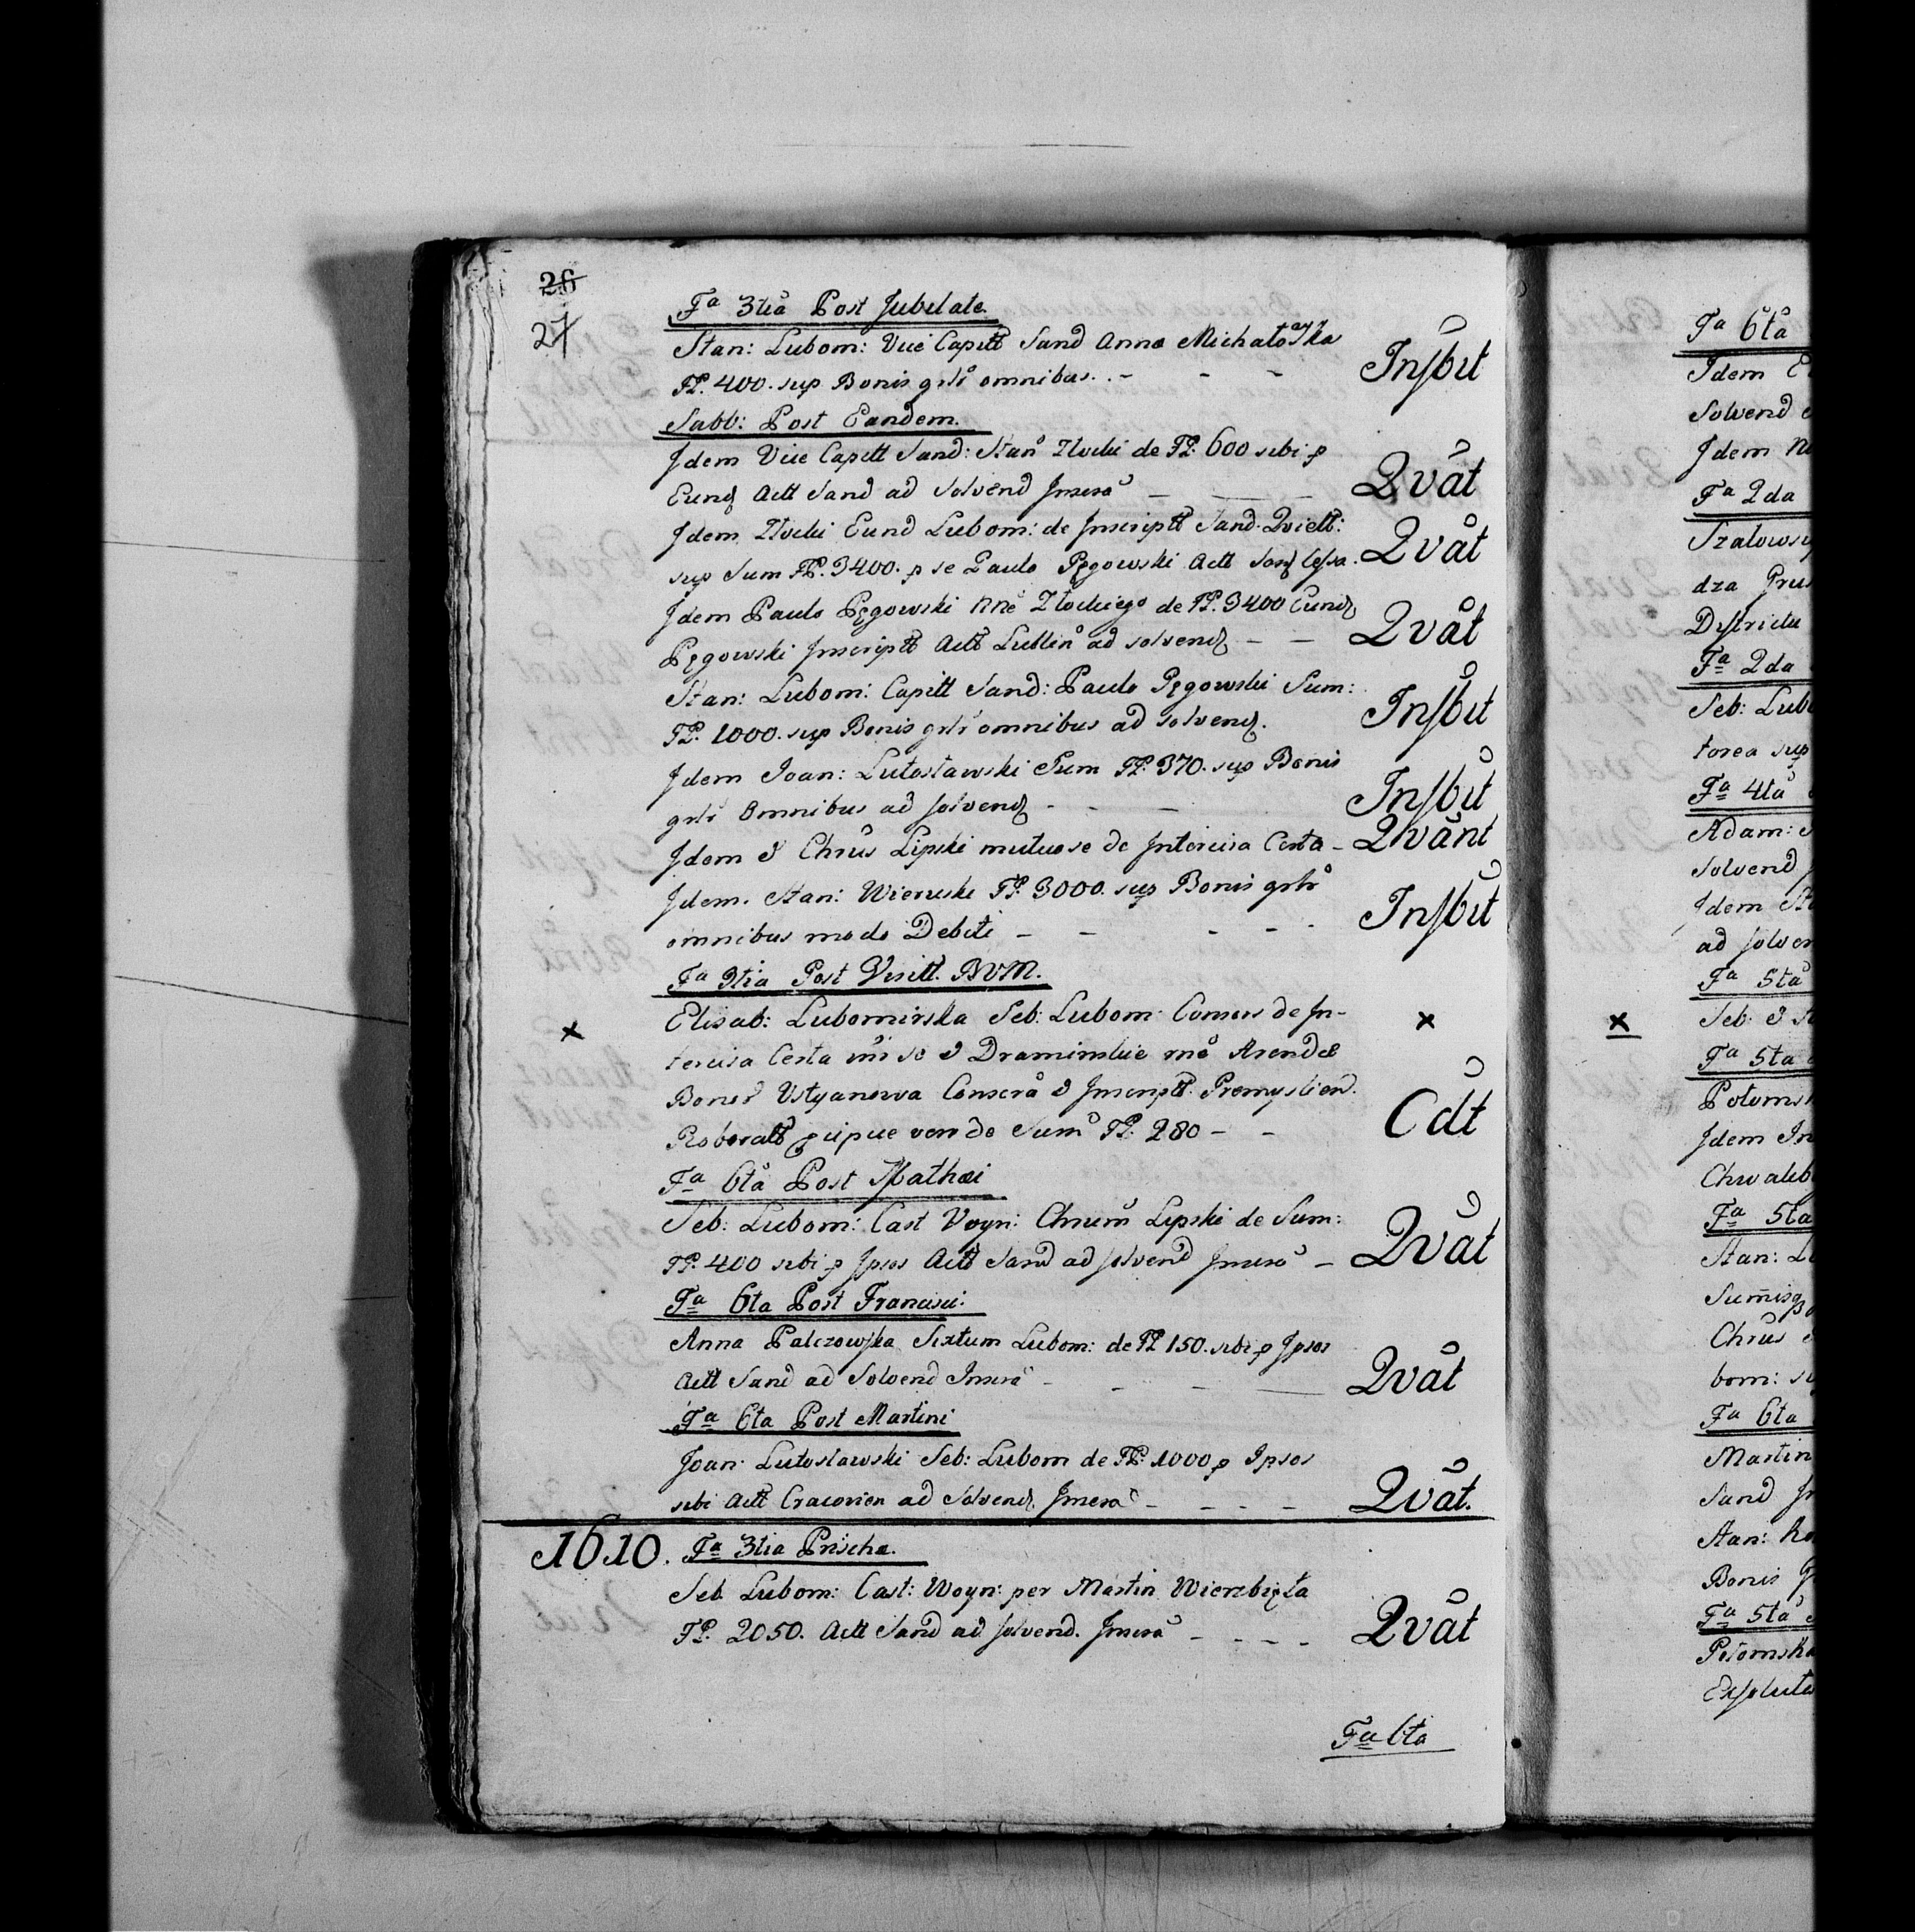 26
27
Fa 3tia Post Jubilate.
Stan: Lubom: Vice Capitt Sand Anna Michałowska
FP. 400. sup Bonis grlr omnibus. . - - - Insbit
Sabb: Post Eandem.
Idem Vice Capitt Sand: Stan Złocki de FP. 600 sibi p
Eund Actt Sand ad Solvend Inscra - Qvat
Idem Złocki Eund Lubom: de Inscriptt Sand. Qviett:
sup Sum FP. 3400. p se Paulo Pęgowski Actt Sand Cessa. Qvat
Idem Paulo Pęgowski nne Złockiego de FP. 3400 Eund
Pęgowski Inscriptt Actt Lublin ad solvend - - Qvat
Stan: Lubom: Capitt Sand: Paulo Pęgowski Sum:
FP. 1000. sup Bonis grlr omnibus ad solvend. Insbit
Idem Joan: Lutosławski Sum FP. 370. sup Bonis
grlr Omnibus ad solvend - - - Insbit
Idem & Chrus Lipski mutuo se de Intercisa Certa - Qvant
Idem. Stan: Wieruski FP. 3000. sup Bonis grlr
omnibus modo Debiti - - - - - Insbit
Fa 3tia Post Visitt. BVM.
x Elisab: Lubomirska Seb: Lubom: Consors de In- x
tercisa Certa inr se & Draminskie rne Arendæ
Bonor Ustyanowa Conscra & Inscriptt. Premyslien.
Roboratt de Sum FP. 280 - - Cdt
Fa 6ta Post Mathæi
Seb: Lubom: Cast Voyn: Chrum Lipski de Sum:
FP. 400 sibi p Ipsos Actt Sand ad solvend Inscra - Qvat
Fa 6ta Post Francisci:
Anna Palczowska Sixtum Lubom: de FP 150. sibi p Ipsos
Actt Sand ad Solvend Inscra - - - - Qvat
Fa 6ta Post Martini
Joan: Lutosławski Seb: Lubom de FP. 1000 p Ipsos
sibi Actt Cracovien ad Solvend Inscra - - - - Qvat.
1610. Fa 3tia Prischa.
Seb Lubom: Cast: Woyn: per Martin Wierzbięta
FP. 2050. Actt Sand ad solvend. Inscra - - - - Qvat
Fa 6ta
Fa 6ta
Idem
Solvend
Idem
Fa 2da
Szalowsz
dza Grus
Districtu
Fa 2da
Seb: Lub
torea sup
Fa 4ta
Adam:
solvend
Idem St
ad solven
Fa 5ta
x Seb: &
Fa 5ta
Potoms
Idem In
Chwalib
Fa 5ta
Stan: Lu
Sumisq
Chrus
bom: su
Fa 6ta
Martin
Sand In
Stan: Ko
Bonis G
Fa 5ta
Potomsk
Exsoluta